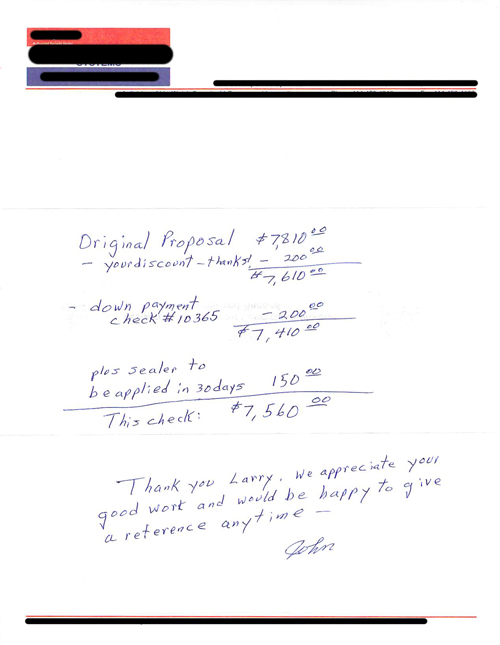 SYSTEMS
Original Proposal $7,810.00
- your discount - thanks! - 200.00
$7,610.00
- down payment
check #10365 - 200.00
$7,410.00
plus sealer to
be applied in 30 days 150.00
This check: $7,560.00
Thank you Larry. We appreciate your
good work and would be happy to give
a reference anytime —
John